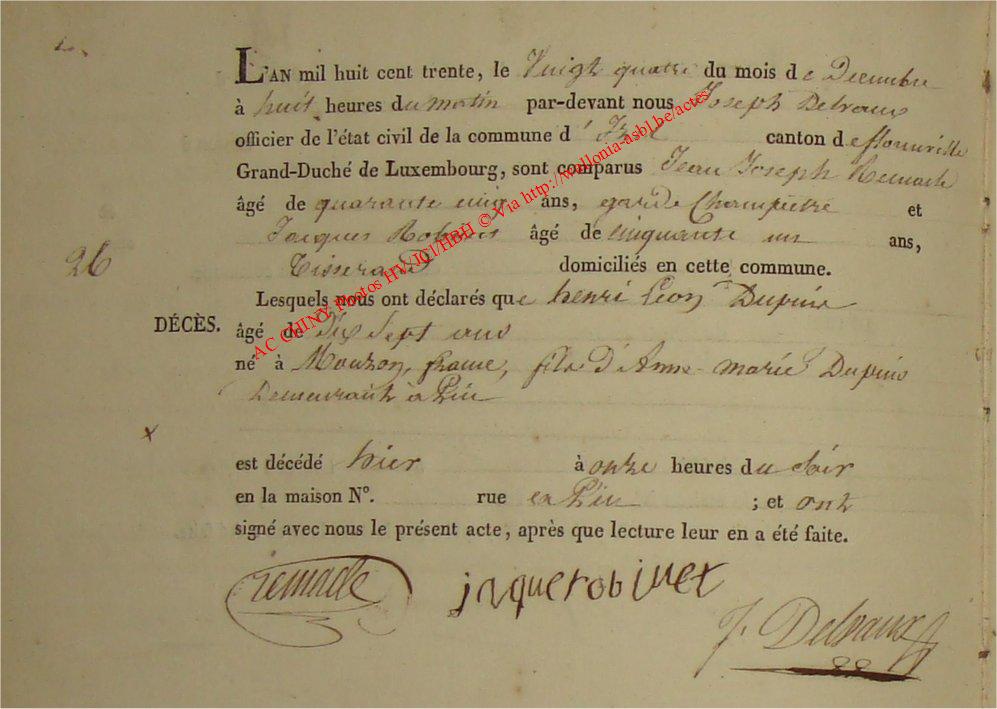 L'AN mil huit cent trente, le Vingt quatre du mois de Decembre
à huit heures du matin par-devant nous Joseph Delvaux
officier de l'état civil de la commune d' Izel canton de florenville
Grand-Duché de Luxembourg, sont comparus Jean Joseph Remacle
âgé de quarante cinq ans, garde Champetre et
Jacques Robinet âgé de Cinquante un ans,
Tisserand domiciliés en cette commune.
Lesquels nous ont déclarés que henri Léon Dupuis
26
DÉCÈS.
âgé de Dix Sept ans
né à Mouzon, france, fils d'Anne-marie Dupuis
Demeurant à Pin
est décédé hier à onze heures du Soir
en la maison N°. rue en Pin ; et ont
signé avec nous le présent acte, après que lecture leur en a été faite.
remacle
jaquerobinet
J. Delvaux
AC CHINY Photos HV/JCI/HBH © Via http://wallonia-asbl.be/actes